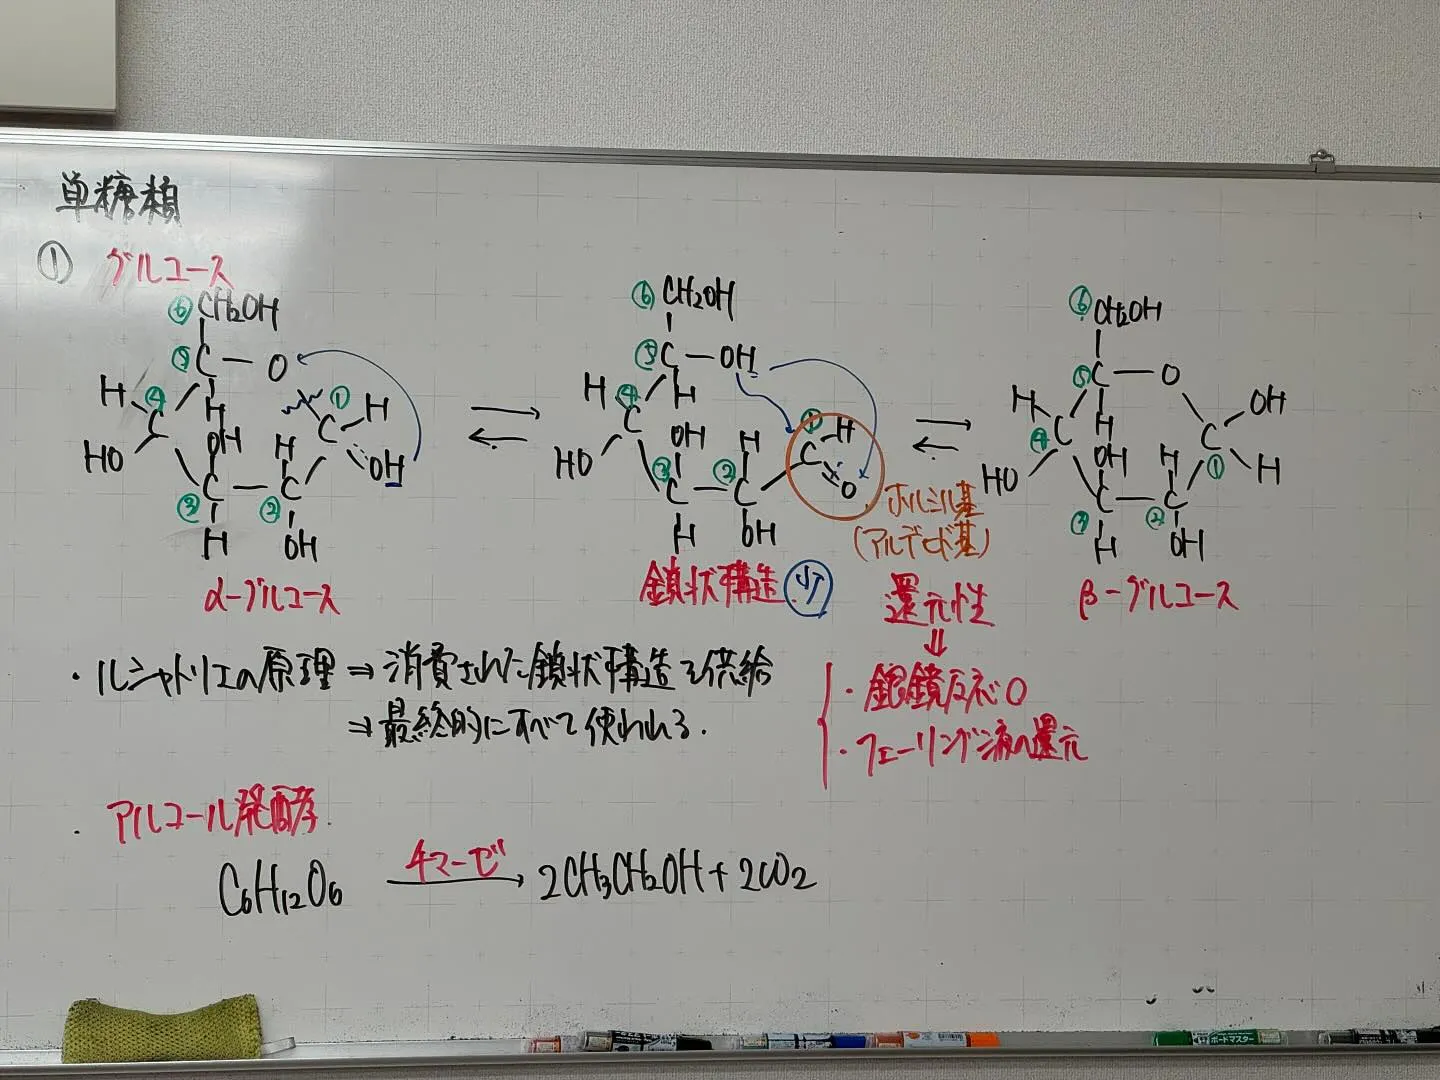 単糖類
① グルコース
⑥ CH2OH
⑤ C - O
H ④ C H ① C H
HO OH H OH
③ C - ② C
H OH
α-グルコース
⑥ CH2OH
⑤ C - OH
H ④ C H ① C H
HO OH H O
③ C - ② C
H OH
ホルミル基
(アルデヒド基)
鎖状構造 少
還元性
⇓
・銀鏡反応○
・フェーリング液の還元
⑥ CH2OH
⑤ C - O
H ④ C H ① C OH
HO OH H H
③ C - ② C
H OH
β-グルコース
・ルシャトリエの原理 ⇒ 消費された鎖状構造を供給
⇒ 最終的にすべて使われる.
・アルコール発酵
C6H12O6 チマーゼ → 2CH3CH2OH + 2CO2
ボードマスター